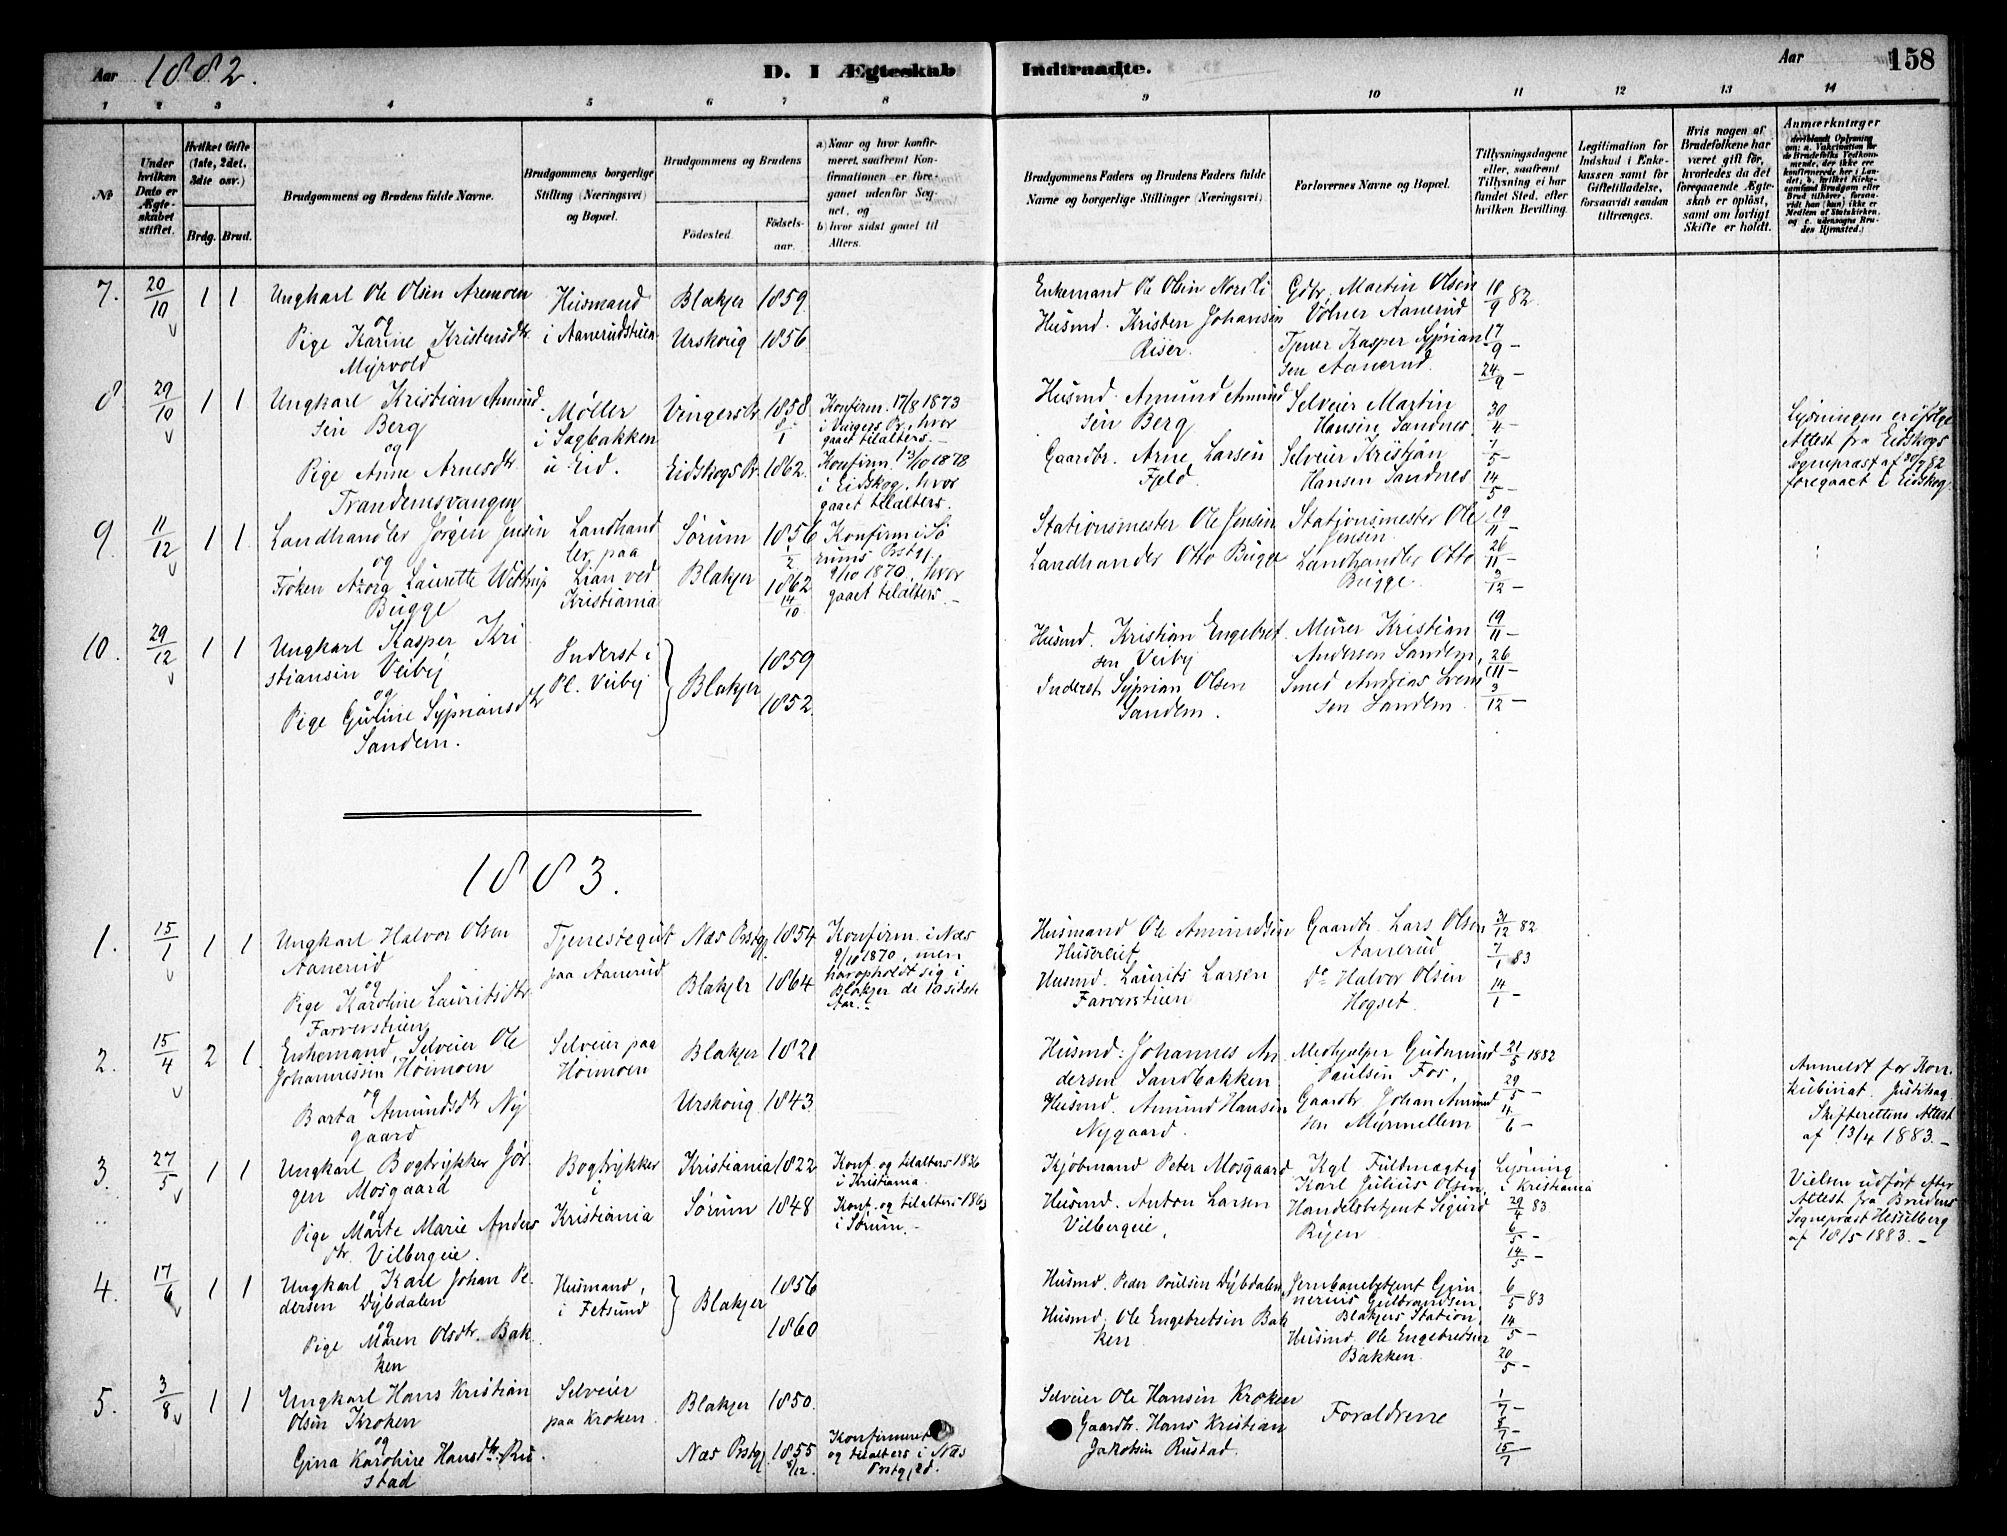 Aar 1882.
D. I Ægteskab
Indtraadte.
Aar
158
1 2 3 4 5 6 7 8
9 10 11 12 13 14
No.
Under hvilken Dato er Ægteskabet stiftet.
Hvilket Gifte (1ste, 2det, 3die osv.)
Brdg. Brud.
Brudgommens og Brudens fulde Navne.
Brudgommens borgerlige Stilling (Næringsvei) og Bopæl.
Brudgommens og Brudens
Födested.
Födselsaar.
a) Naar og hvor konfirmeret, saafremt Konfirmationen er foregaaet udenfor Sognet, og
b) hvor sidst gaaet til Alters.
Brudgommens Faders og Brudens Faders fulde Navne og borgerlige Stillinger (Næringsvei)
Forlovernes Navne og Bopæl.
Tillysningsdagene eller, saafremt Tillysning ei har fundet Sted, efter hvilken Bevilling.
Legitimation for Indskud i Enkekassen samt for Giftetilladelse, forsaavidt saadan tiltrænges.
Hvis nogen af Brudefolkene har været gift før, hvorledes da det foregaaende Ægteskab er opløst, samt om lovligt Skifte er holdt.
Anmærkninger
7. 20/10 1 1
Ungkarl Ole Olsen Aremoen
og
Pige Karine Kristensdtr.
Myrvold
Husmand
i Aanerudstuen
Blakjer 1859.
Urskoug 1856.
Enkemand Ole Olsen Nordli
Husmd. Kristen Johansen
Riser.
Gdbr. Martin Olsen
Völner Aanerud
Tjener Kasper Syprian
sen Aanerud.
18/9 82.
17/9 –
24/9 –
8. 29/10 1 1
Ungkarl Kristian Amund
sen Berg
og
Pige Anne Arnesdtr.
Trandemsvangen
Møller
i Sagbakken
u. Eid.
Vingers Pr. 1858 8/1
Eidskogs Pr. 1862.
Konfirm. 17/8 1873
i Vingers Pr., hvor
gaaet tilalters. –
Konfirm. 13/10 1878
i Eidskog, hvor
gaaet tilalters.
Husmd. Amund Amund
sen Berg
Gaardbr. Arne Larsen
Fjeld.
Selveier Martin
Hansen Sandnes.
Selveier Kristian
Hansen Sandnes
30/4 –
7/5 –
14/5 –
Lysningen er ifølge
Attest fra Eidskogs
Sognepræst af 30/7 82
foregaaet i Eidskog.
9. 11/12 1 1.
Landhandler Jørgen Jensen
og
Frøken Azora Laurette Wittrup
Bugge
Landhand
ler paa
Lian ved
Kristiania
Sørum 1856 1/2
Blakjer 1862 14/10
Konfirm i Sø
rums Prstgj.
9/10 1870, hvor
gaaet tilalters. –
Stationsmester Ole Jensen
Landhandler Otto Bugge
Stationsmester Ole
Jensen.
Landhandler Otto
Bugge.
19/11 –
26/11 –
3/12 –
10. 29/12 1 1
Ungkarl Kasper Kri
stiansen Veiby
og
Pige Guline Sypriansdtr
Sandem.
Inderst i
Pl. Veiby
Blakjer
1859
1852.
Husmd. Kristian Engebret
sen Veiby
Inderst Syprian Olsen
Sandem.
Murer Kristian
Andersen Sandem,
Smed Andreas Svend
sen Sandem.
19/11 –
26/11 –
3/12 –
1883.
1. 15/1 1 1
Ungkarl Halvor Olsen
Aanerud
og
Pige Karoline Lauritsdtr.
Farverstuen
Tjenestegut
paa Aanerud
Næs Prstgj. 1854
Blakjer 1864
Konfirm. i Næs
9/10 1870, men
har opholdt sig i
Blakjer de 10 sidste
Aar. –
Husmand Ole Amundsen
Husereiet,
Husmd. Laurits Larsen
Farverstuen
Gaardbr. Lars Olsen
Aanerud
do Halvor Olsen
Hogset.
31/12 82
7/1 83
14/1 –
2. 15/4 2 1.
Enkemand, Selveier Ole
Johannessen Høimoen
og
Barta Amundsdtr. Ny
gaard
Selveier paa
Høimoen
Blakjer 1821
Urskoug 1843.
Husmd. Johannes An
dersen Sandbakken
Husmd. Amund Hansen
Nygaard.
Medhjælper Gudmund
Paulsen Fos,
Gaardbr Johan Amund
sen Myrmellem
21/5 1882
29/5 –
4/6 –
Anmeldt for Kon
kubinat. Justitiag
Skifterettens Attest
af 13/4 1883. –
3. 27/5 1 1
Ungkarl Bogtrykker Jør
gen Mosgaard
og
Pige Marte Marie Anders
dtr. Vilbergeie.
Bogtrykker
i
Kristiania
Kristiania 1822
Sørum 1848
Konf. og tilalters 1836
i Kristiania.
Konf. og tilalters 1863
i Sørum. –
Kjøbmand Peter Mosgaard
Husmd. Anton Larsen
Vilbergeie,
Kgl Fuldmægtig
Karl Julius Olsen,
Handelsbetjent Sigurd
Ryen
Lysning
i Kristiania
29/4 83
6/5 –
14/5 –
Vielsen udført efter
Attest fra Brudens
Sognepræst Hesselberg
af 18/5 1883. –
4. 17/6 1 1
Ungkarl Karl Johan Pe
dersen Dybdalen
og
Pige Maren Olsdtr. Bak
ken
Husmand,
i Fetsund
Blakjer
1856
1860
Husmd. Peder Poulsen Dybdalen,
Husmd, Ole Engebretsen Bak
ken
Jernbanebetjent Gun
nerius Gulbrandsen,
Blakjers Station,
Husmd. Ole Engebretsen
Bakken.
6/5 83
14/5 –
20/5 –
5. 3/8 1 1
Ungkarl Hans Kristian
Olsen Kroken
og
Gina Karoline Hansdtr. Ru
stad
Selveier
paa Kroken.
Blakjer 1850.
Næs Prstgj. 1855 8/12.
Konfirmeret
og tilalters i Næs
Prstgjeld.
Selveier Ole Hansen Kroken
Gaardbr. Hans Kristian
Jakobsen Rustad.
Forældrene
1/7 –
8/7 –
15/7 –